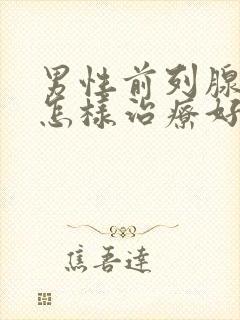 男性前列腺
怎样治療好
焦吾達